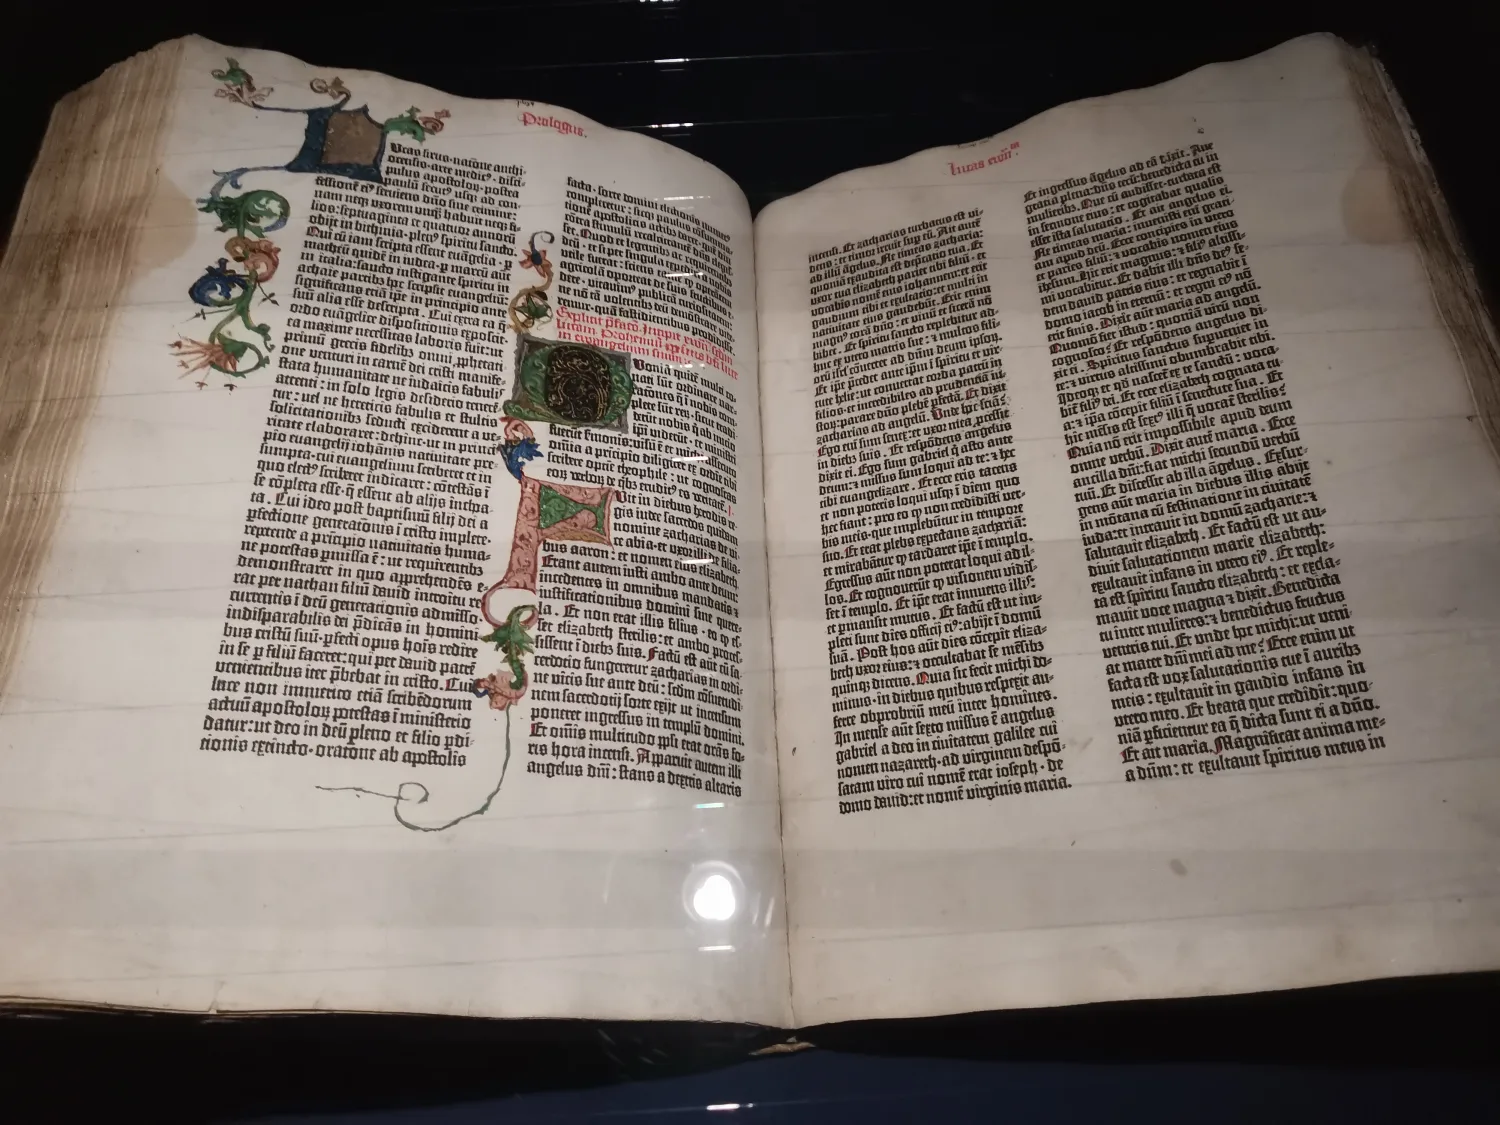 Prologus.
Ucas sirus·natione anthi-
ocensis·arte medicus·disci-
pulus apostolorum·postea
paulū secut⁹ usq; ad con-
fessionē ei⁹ serviens dño sine crimine:
nam neq; uxorem unq̄ habuit neq; fi-
lios: septuaginta et quatuor annorū
obijt in bithinia·plen⁹ spiritu sancto.
Qui cū iam scripta essent euāgelia·p
matheū quidē in iudea·p marcū aūt
in italia: sancto instigante spiritu in
achaie partib⁹ hoc scripsit euangeliū:
significans etiā ip̄e in principio ante
suū alia esse descripta. Cui extra ea q̄
ordo euāgelice dispositionis exposcit·
ea maxime necessitas laboris fuit: ut
primū grecis fidelib⁹ omni prophetati-
one venturi in carnē dei cristi manife-
stata humanitate ne iudaicis fabulis
attenti: in solo legis desiderio tenerē-
tur: uel ne hereticis fabulis et stultis
solicitationib⁹ seducti exciderent a ve-
ritate elaboraret: dehinc·ut in princi-
pio euangelij iohānis nativitate pre-
sumpta·cui euangelium scriberet et in
quo elect⁹ scriberet indicaret: cōtestās ī
se cōpleta esse·q̄ essent ab alijs incho-
ata. Cui ideo post baptismū filij dei a
pfectione generationis ī cristo implete·
repetende a principio nativitatis huma-
ne potestas pmissa ē: ut requirentib⁹
demonstraret in quo apprehendēs e-
rat per nathan filiū dauid introitu re-
currentis ī deū generationis admisso·
indisparabilis dei p̄dicās in homini-
bus cristū suū·pfecti opus hoīs redire
in se p filiū faceret: qui per dauid patrē
venientibus iter p̄bebat in cristo. Cui
luce non immerito etiā scribēdorum
actuū apostolorū potestas ī ministerio
datur: ut deo in deū pleno et filio pdi-
tionis extincto·oratione ab apostolis
facta·sorte domini electionis numerus
compleretur: sicq; paulus cōsummati-
onē apostolicis actibus daret·quē diu
cōtra stimulū recalcitrantē dñs elegis-
set. Quod et legentib⁹ ac requirentib⁹
deū·etsi per singula expediri a nobis
utile fuerat: sciens tamē q̄ operantem
agricolā oporteat de suis fructibus e-
dere·vitauim⁹ publicā curiositatem:
ne nō tā volentib⁹ deū demōstrare vide-
remur·quā fastidientibus prodidisse.
Explicit p̄facō. Incipit euāg. scdm
lucam. Prohemiū ip̄ius beati luce
in euangelium suum.
Voniā quidē multi co-
nati sūt ordinare nar-
rationes q̄ ī nobis com-
plete sūt rerū·sicut tradi-
derūt nobis q̄ ab initio
ip̄i viderūt·et ministri
fuerūt sermonis: visū ē et michi assecuto
omīa a pricipio diligēter ex ordīe tibi
scribere optie theophile: ut cognoscas
eorū verborū de q̄b⁹ erudit⁹ es veritatē. I.
Uit in diebus herodis re-
gis iudee sacerdos quidam
nomine zacharias de vi-
ce abia·et uxor illi de filia-
bus aaron: et nomen eius elizabeth.
Erant autem iusti ambo ante deum:
incedentes in omnibus mandatis ⁊
iustificationibus domini sine quere-
la. Et non erat illis filius·eo q̄ es-
set elizabeth sterilis: et ambo proces-
sissent ī dieb⁹ suis. Factū est aūt cū sa-
cerdotio fungeretur zacharias in ordi-
ne vicis sue ante deū: scdm cōsuetudi-
nem sacerdotij sorte exijt ut incensum
poneret ingressus in templū domini.
Et om̄is multitudo ppli erat orās fo-
ris hora incensi. Apparuit autem illi
angelus dn̄i: stans a dextris altaris
lucas euūm
incensi. Et zacharias turbatus est vi-
dens: et timor irruit sup eū. Ait autē
ad illū āgelus. Ne timeas zacharia:
quoniā exaudita est dep̄catio tua. Et
uxor tua elizabeth pariet tibi filiū·et
vocabis nomē eius iohannē: et erit
gaudium tibi et exultatio: et multi in
nativitate eius gaudebūt. Erit enim
magn⁹ corā dn̄o: et vinū et sicerā nō
bibet. Et spiritu sancto replebitur ad-
huc ex utero matris sue: ⁊ multos fili-
orū isrl cōvertet ad dn̄m deum ipsorū.
Et ip̄e p̄cedet ante ip̄m ī spiritu et vir-
tute helie: ut convertat corda patrū in
filios·et incredibiles ad prudentiā iu-
storū: parare dn̄o plebē pfectā. Et dixit
zacharias ad angelū. Unde hoc sciā?
Ego eni sum senex: et uxor mea p̄cessit
in dieb⁹ suis. Et respōdens angelus
dixit ei. Ego sum gabriel q̄ asto ante
deum: ⁊ missus sum loqui ad te: ⁊ hec
tibi evangelizare. Et ecce eris tacens
et non poteris loqui usq; ī diem quo
hec fiant: pro eo q̄ non credidisti ver-
bis meis·que implebūtur in tempore
suo. Et erat plebs expectans zachariā:
et mirabātur q̄ tardaret ip̄e ī templo.
Egressus aūt non poterat loqui ad il-
los. Et cognoverūt q̄ visionem vidis-
set ī templo. Et ip̄e erat innuens illis:
et pmansit mutus. Et factū est ut im-
pleti sunt dies officij ei⁹: abijt ī domū
suā. Post hos aūt dies cōcepit eliza-
beth uxor eius: ⁊ occultabat se mēsib⁹
quinq; dicens. Quia sic fecit michi do-
minus·in diebus quibus respexit au-
ferre obprobriū meū inter homines.
In mense aūt sexto missus ē angelus
gabriel a deo in civitatem galilee cui
nomen nazareth·ad virginem despō-
satam viro cui nomē erat ioseph·de
domo dauid: et nomē virginis maria.
Et ingressus āgelus ad eā dixit. Ave
gratia plena: dn̄s tecū: benedicta tu in
mulierib⁹. Que cū audisset·turbata est
in sermone eius: et cogitabat qualis
esset ista salutatio. Et ait angelus ei.
Ne timeas maria: invenisti enī grati-
am apud deum. Ecce concipies in utero
et paries filiū: ⁊ vocabis nomen eius
ihesum. Hic erit magnus: ⁊ fili⁹ altissi-
mi vocabitur. Et dabit illi dn̄s de⁹ se-
dem dauid patris ei⁹: et regnabit ī
domo iacob in eternū: et regni ei⁹ nō
erit finis. Dixit aūt maria ad angelū.
Quomō fiet istud: quoniā virū non
cognosco? Et respōdens angelus di-
xit ei. Spiritus sanctus superveniet in
te: ⁊ virtus altissimi obumbrabit tibi.
Ideoq; et q̄d nascet̄ ex te sanctū: voca-
bit̄ fili⁹ dei. Et ecce elizabeth cognata tu-
a: ⁊ ip̄a cōcepit filiū ī senectute sua. Et
hic mēsis est sext⁹ illi q̄ vocat̄ sterilis:
Quia nō erit impossibile apud deum
omne verbū. Dixit autē maria. Ecce
ancilla dn̄i: fiat michi secundū verbū
tuū. Et discessit ab illa āgelus. Exsur-
gens aūt maria in diebus illis abijt
in mōtana cū festinatione in civitatē
iuda: et intravit in domū zacharie: ⁊
salutavit elizabeth. Et factū est ut au-
divit salutationem marie elizabeth:
exultavit infans in utero ei⁹. Et reple-
ta est spiritu sancto elizabeth: et excla-
mavit voce magna ⁊ dixit. Benedicta
tu inter mulieres: ⁊ benedictus fructus
ventris tui. Et unde hoc michi: ut veni-
at mater dn̄i mei ad me? Ecce enim ut
facta est vox salutationis tue ī aurib⁹
meis: exultavit in gaudio infans in
utero meo. Et beata que credidit: quo-
niā pficientur ea q̄ dicta sunt ei a dn̄o.
Et ait maria. Magnificat anima me-
a dūm: et exultavit spiritus meus in